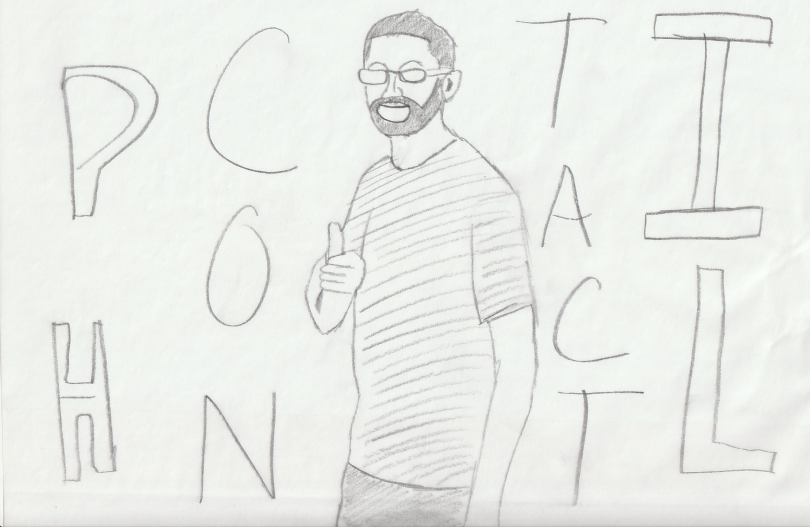 PH
CON
TACT
IL